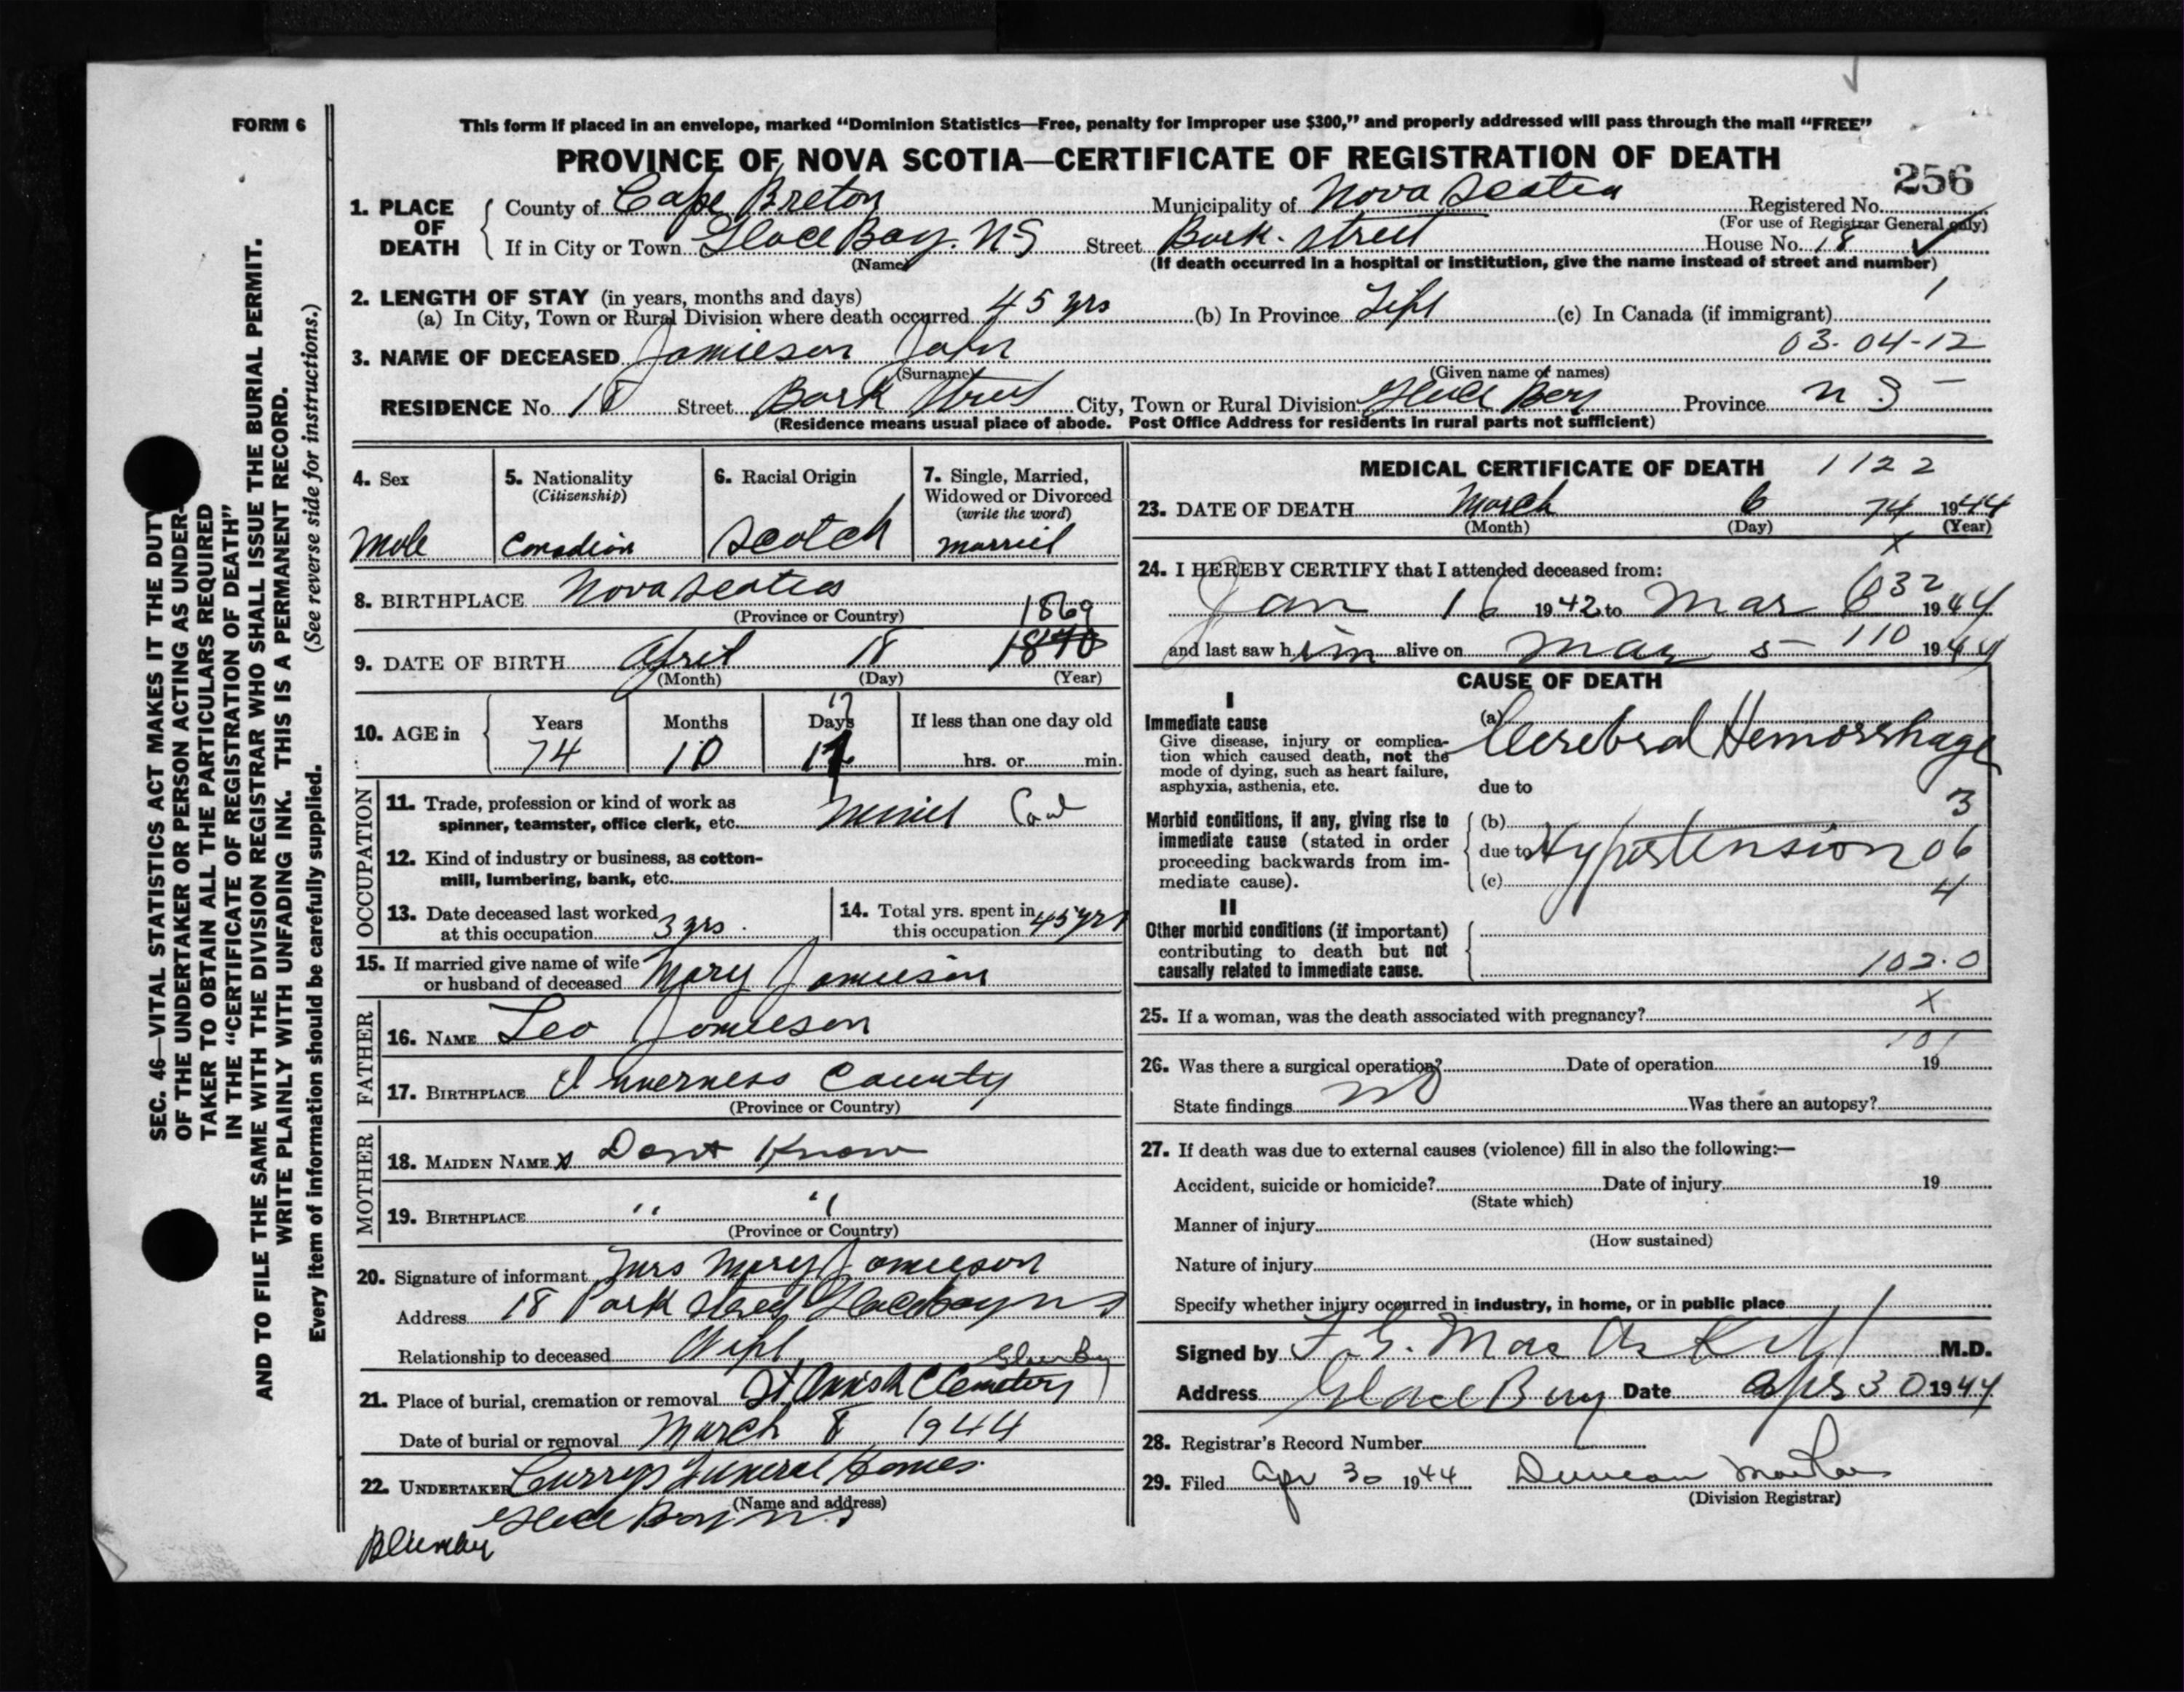 FORM 6
This form if placed in an envelope, marked “Dominion Statistics—Free, penalty for improper use $300,” and properly addressed will pass through the mail “FREE”
PROVINCE OF NOVA SCOTIA—CERTIFICATE OF REGISTRATION OF DEATH
256
1. PLACE OF DEATH
County of Cape Breton Municipality of Nova Scotia Registered No.
(For use of Registrar General only)
If in City or Town Glace Bay. N-S Street Park. Street House No. 18
(Name) (If death occurred in a hospital or institution, give the name instead of street and number)
2. LENGTH OF STAY (in years, months and days) 1
(a) In City, Town or Rural Division where death occurred 45 yrs (b) In Province Life (c) In Canada (if immigrant)
3. NAME OF DECEASED Jamieson John 03-04-12
(Surname) (Given name of names)
RESIDENCE No. 18 Street Park Street City, Town or Rural Division Glace Bay Province N S
(Residence means usual place of abode. Post Office Address for residents in rural parts not sufficient)
4. Sex
Male
5. Nationality
(Citizenship)
Canadian
6. Racial Origin
Scotch
7. Single, Married,
Widowed or Divorced
(write the word)
Married
8. BIRTHPLACE Nova Scotia
(Province or Country)
1869
9. DATE OF BIRTH April 18 1870
(Month) (Day) (Year)
10. AGE in
Years Months Days If less than one day old
17
74 10 hrs. or min.
OCCUPATION
11. Trade, profession or kind of work as
spinner, teamster, office clerk, etc. Miner Coal
12. Kind of industry or business, as cotton-
mill, lumbering, bank, etc.
13. Date deceased last worked
at this occupation 3 yrs.
14. Total yrs. spent in
this occupation 45 yrs
15. If married give name of wife
or husband of deceased Mary Jamieson
FATHER
16. NAME Leo Jamieson
17. BIRTHPLACE Inverness County
(Province or Country)
MOTHER
18. MAIDEN NAME x Dont Know
19. BIRTHPLACE " "
(Province or Country)
20. Signature of informant Mrs Mary Jamieson
Address 18 Park Street Glace bay n s
Relationship to deceased Wife
Glace Bay
21. Place of burial, cremation or removal St Anns Cemetery
Date of burial or removal March 8 1944
22. UNDERTAKER Currys Funeral Homes
(Name and address)
Glace Bay n.s
MEDICAL CERTIFICATE OF DEATH 1122
23. DATE OF DEATH March 6 74 1944
(Month) (Day) (Year)
x
24. I HEREBY CERTIFY that I attended deceased from:
032
Jan 16 1942 to Mar 6 1944
and last saw him alive on Mar 5 110 1944
CAUSE OF DEATH
I
Immediate cause
Give disease, injury or complica-
tion which caused death, not the
mode of dying, such as heart failure,
asphyxia, asthenia, etc.
(a) Cerebral Hemorrhage
due to
3
Morbid conditions, if any, giving rise to
immediate cause (stated in order
proceeding backwards from im-
mediate cause).
(b)
due to Hypertension 06
(c) 4
II
Other morbid conditions (if important)
contributing to death but not
causally related to immediate cause.
102.0
x
25. If a woman, was the death associated with pregnancy?
101
26. Was there a surgical operation? Date of operation 19
State findings no Was there an autopsy?
27. If death was due to external causes (violence) fill in also the following:—
Accident, suicide or homicide? Date of injury 19
(State which)
Manner of injury
(How sustained)
Nature of injury
Specify whether injury occurred in industry, in home, or in public place
Signed by F. G. MacAskill M.D.
Address Glace Bay Date Apr 30 1944
28. Registrar's Record Number
29. Filed Apr 30 1944 Duncan
(Division Registrar)
SEC. 46—VITAL STATISTICS ACT MAKES IT THE DUTY
OF THE UNDERTAKER OR PERSON ACTING AS UNDER-
TAKER TO OBTAIN ALL THE PARTICULARS REQUIRED
IN THE “CERTIFICATE OF REGISTRATION OF DEATH”
AND TO FILE THE SAME WITH THE DIVISION REGISTRAR WHO SHALL ISSUE THE BURIAL PERMIT.
WRITE PLAINLY WITH UNFADING INK. THIS IS A PERMANENT RECORD.
Every item of information should be carefully supplied. (See reverse side for instructions.)